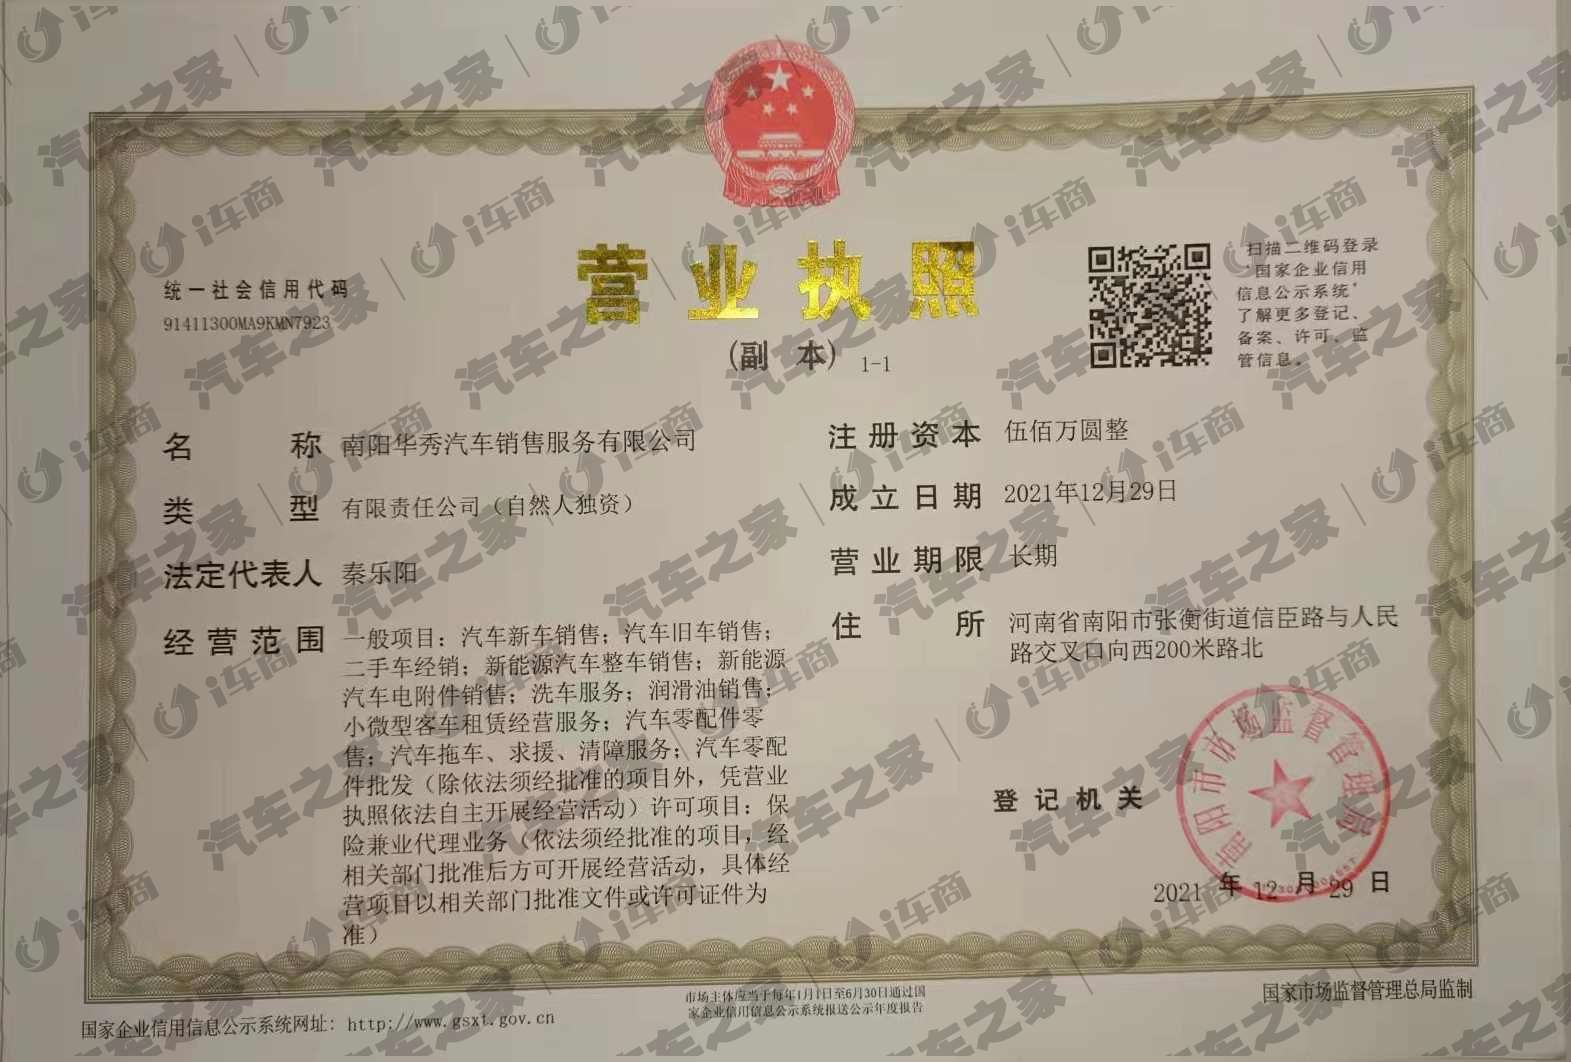 营业执照
(副 本) 1-1
统一社会信用代码
91411300MA9KMN7923
扫描二维码登录
‘国家企业信用
信息公示系统’
了解更多登记、
备案、许可、监
管信息。
名 称 南阳华秀汽车销售服务有限公司
类 型 有限责任公司（自然人独资）
法定代表人 秦乐阳
经营范围 一般项目：汽车新车销售；汽车旧车销售；
二手车经销；新能源汽车整车销售；新能源
汽车电附件销售；洗车服务；润滑油销售；
小微型客车租赁经营服务；汽车零配件零
售；汽车拖车、求援、清障服务；汽车零配
件批发（除依法须经批准的项目外，凭营业
执照依法自主开展经营活动）许可项目：保
险兼业代理业务（依法须经批准的项目，经
相关部门批准后方可开展经营活动，具体经
营项目以相关部门批准文件或许可证件为
准）
注册资本 伍佰万圆整
成立日期 2021年12月29日
营业期限 长期
住 所 河南省南阳市张衡街道信臣路与人民
路交叉口向西200米路北
登记机关
南阳市市场监督管理局
2021 年 12 月 29 日
国家企业信用信息公示系统网址：http://www.gsxt.gov.cn
市场主体应当于每年1月1日至6月30日通过国
家企业信用信息公示系统报送公示年度报告
国家市场监督管理总局监制
汽车之家
i车商